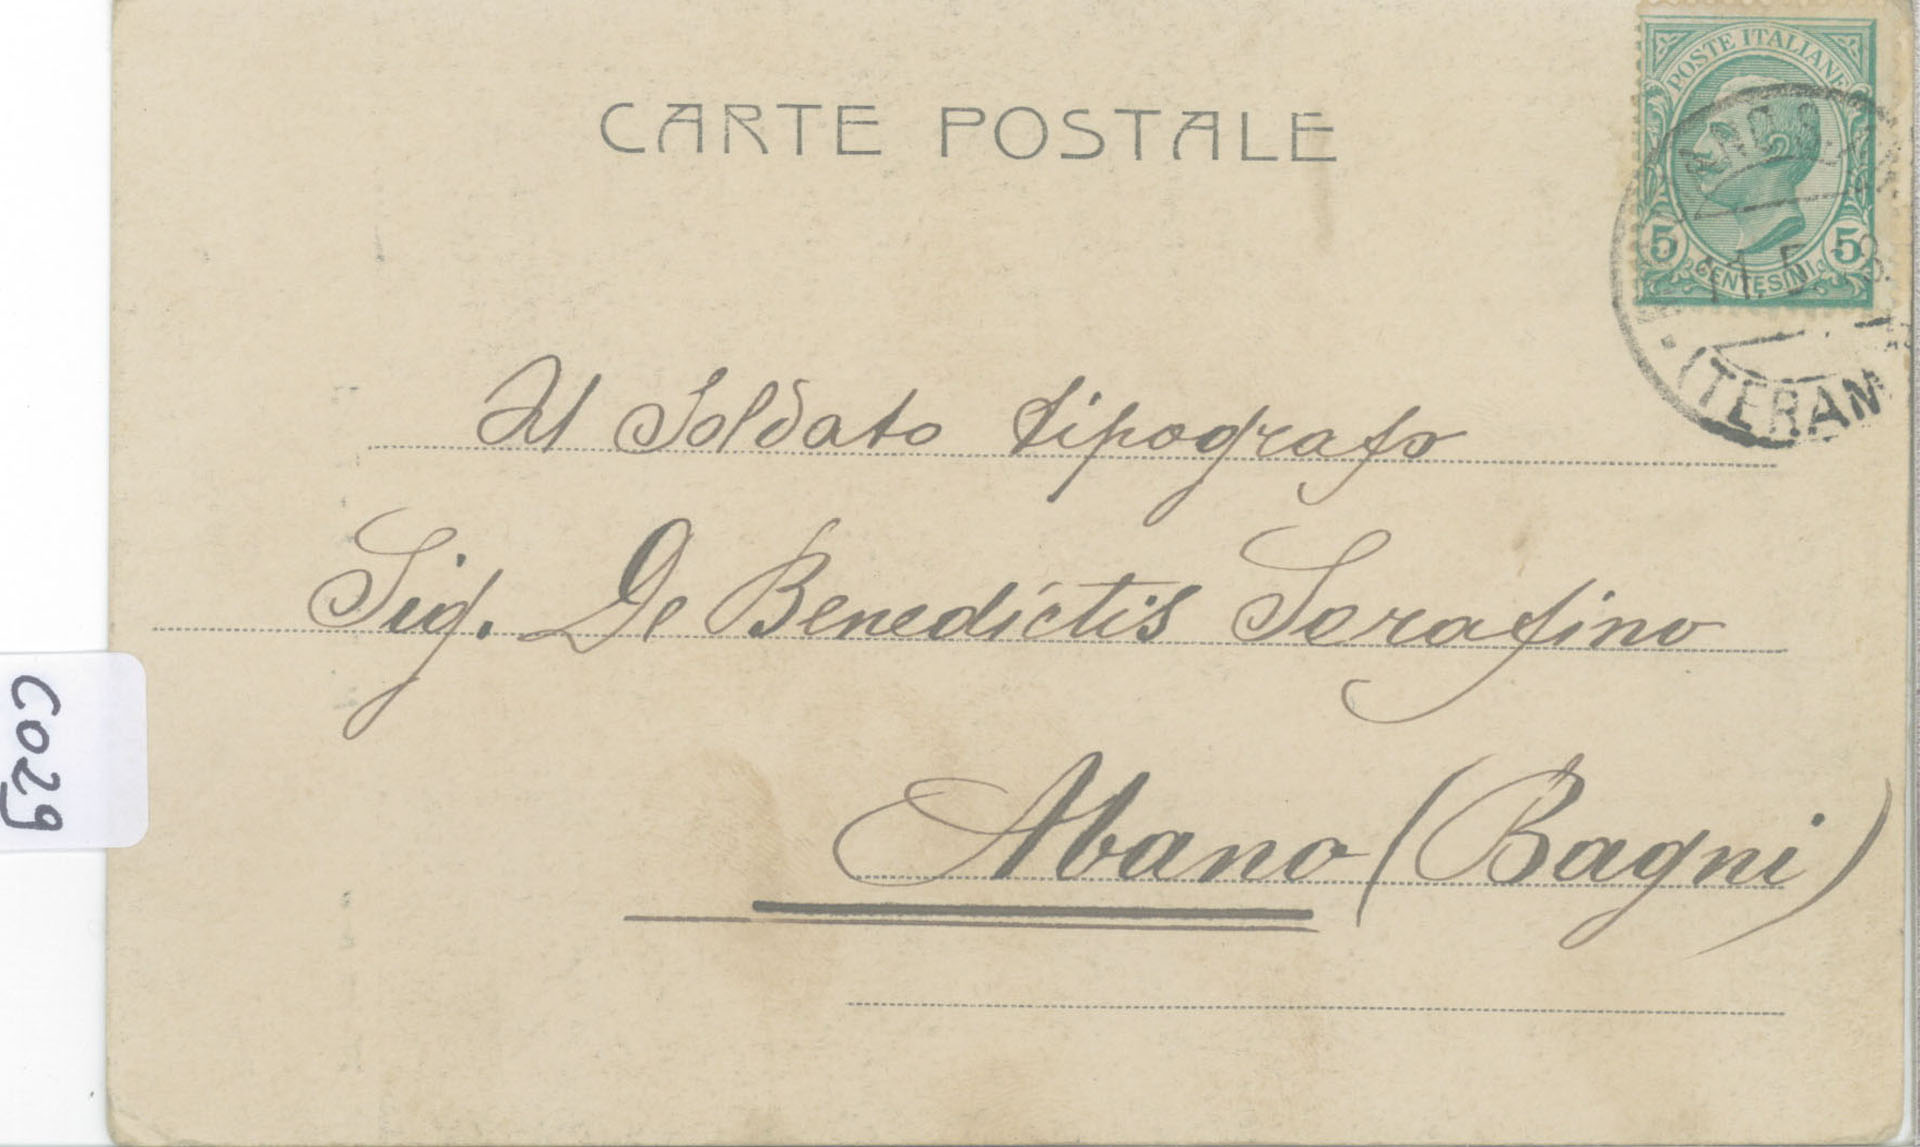 POSTE ITALIANE
5 5
CENTESIMI
11.5.
(TERAM
CARTE POSTALE
Al Soldato tipografo
Sig. De Benedictis Serafino
Abano (Bagni)
C029